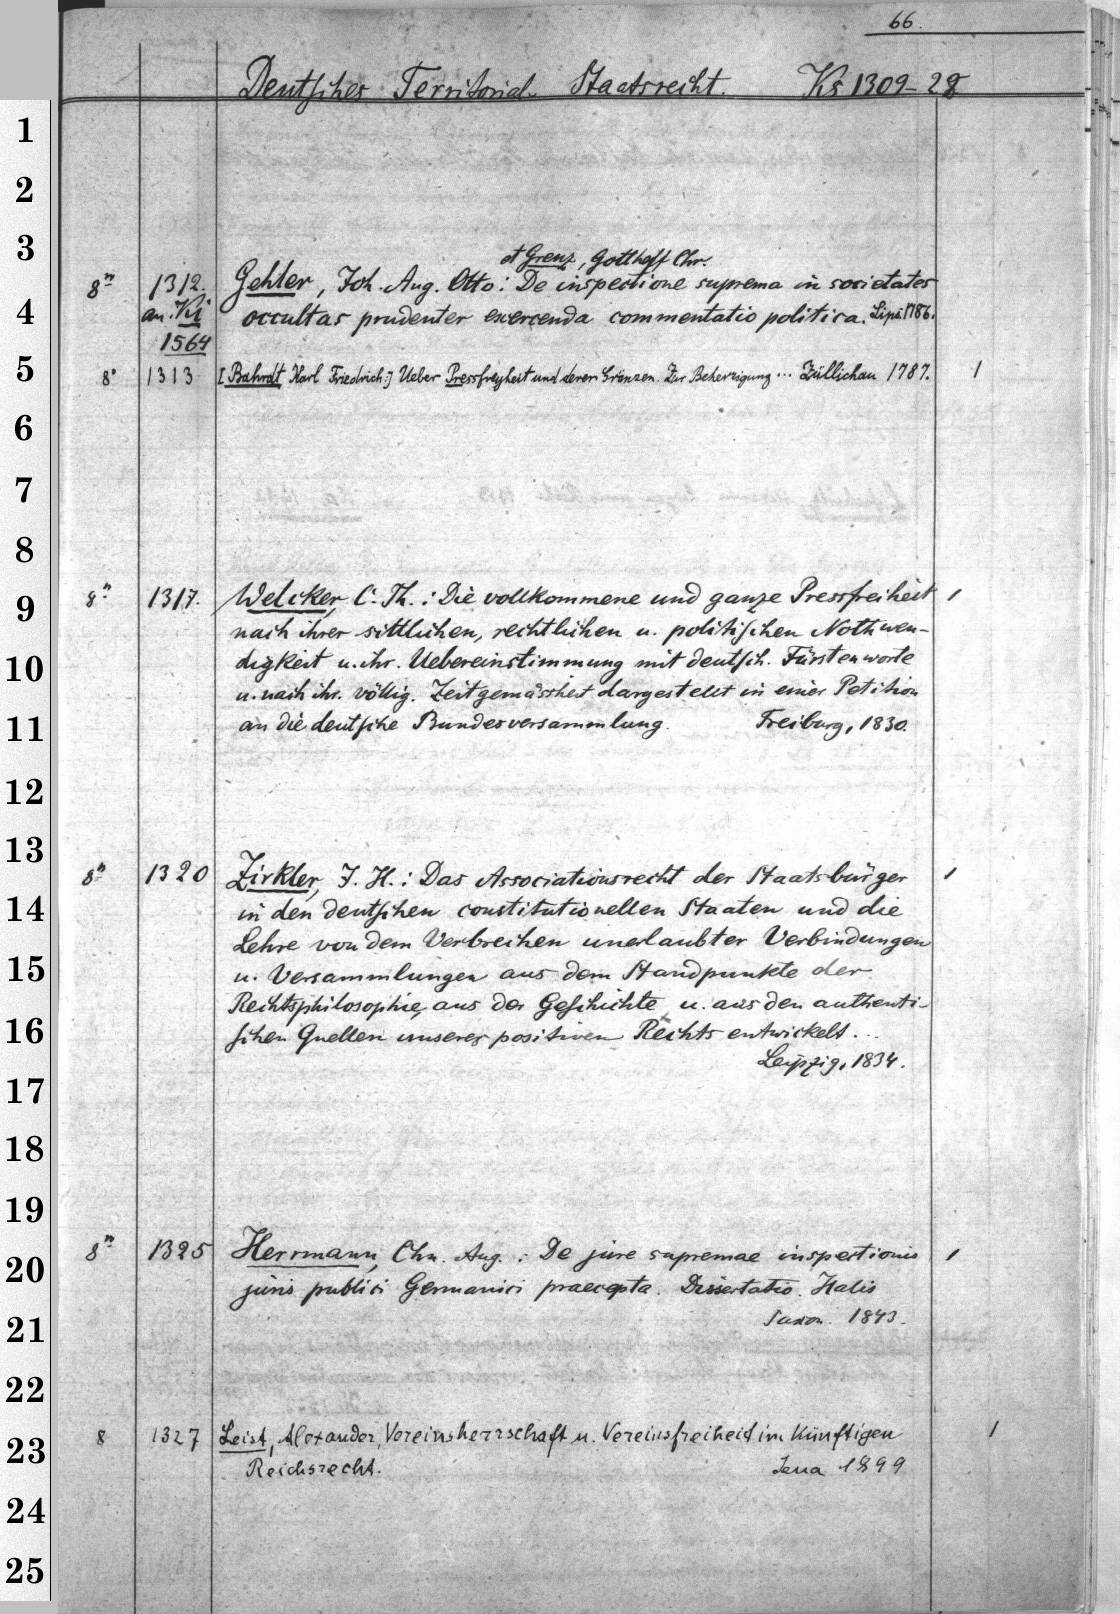 66.
Deutsches Territorial-Staatsrecht. Ks 1309-28
1
2
3
et Grenz, Gotthelf Chr.
8° 1312. Gehler, Joh. Aug. Otto: De inspectione suprema in societates
4
an. Ki occultas prudenter exercenda commentatio politica. Lips. 1786.
1564
5
8° 1313 [Bahrdt Karl Friedrich:] Ueber Pressfreyheit und deren Gränzen. Zur Beherzigung ... Züllichau 1787. 1
6
7
8
9
8° 1317. Welcker, C. Th.: Die vollkommene und ganze Pressfreiheit 1
nach ihrer sittlichen, rechtlichen u. politischen Nothwen-
10
digkeit u. ihr. Uebereinstimmung mit deutsch. Fürstenworte
u. nach ihr. völlig. Zeitgemässheit dargestellt in einer Petition
11
an die deutsche Bundesversammlung. Freiburg, 1830.
12
13
8° 1320 Zirkler, J. H.: Das Associationsrecht der Staatsbürger 1
14
in den deutschen constitutionellen Staaten und die
Lehre von dem Verbrechen unerlaubter Verbindungen
15
u. Versammlungen aus dem Standpunkte der
Rechtsphilosophie, aus der Geschichte u. aus den authenti-
16
schen Quellen unseres positiven Rechts entwickelt...
Leipzig, 1834.
17
18
19
8° 1325 Herrmann, Chn. Aug.: De jure supremae inspectionis 1
20
juris publici Germanici praecepta. Dissertatio. Halis
Saxon. 1843.
21
22
23
8 1327 Leist, Alexander, Vereinsherrschaft u. Vereinsfreiheit im künftigen 1
Reichsrecht. Jena 1899
24
25